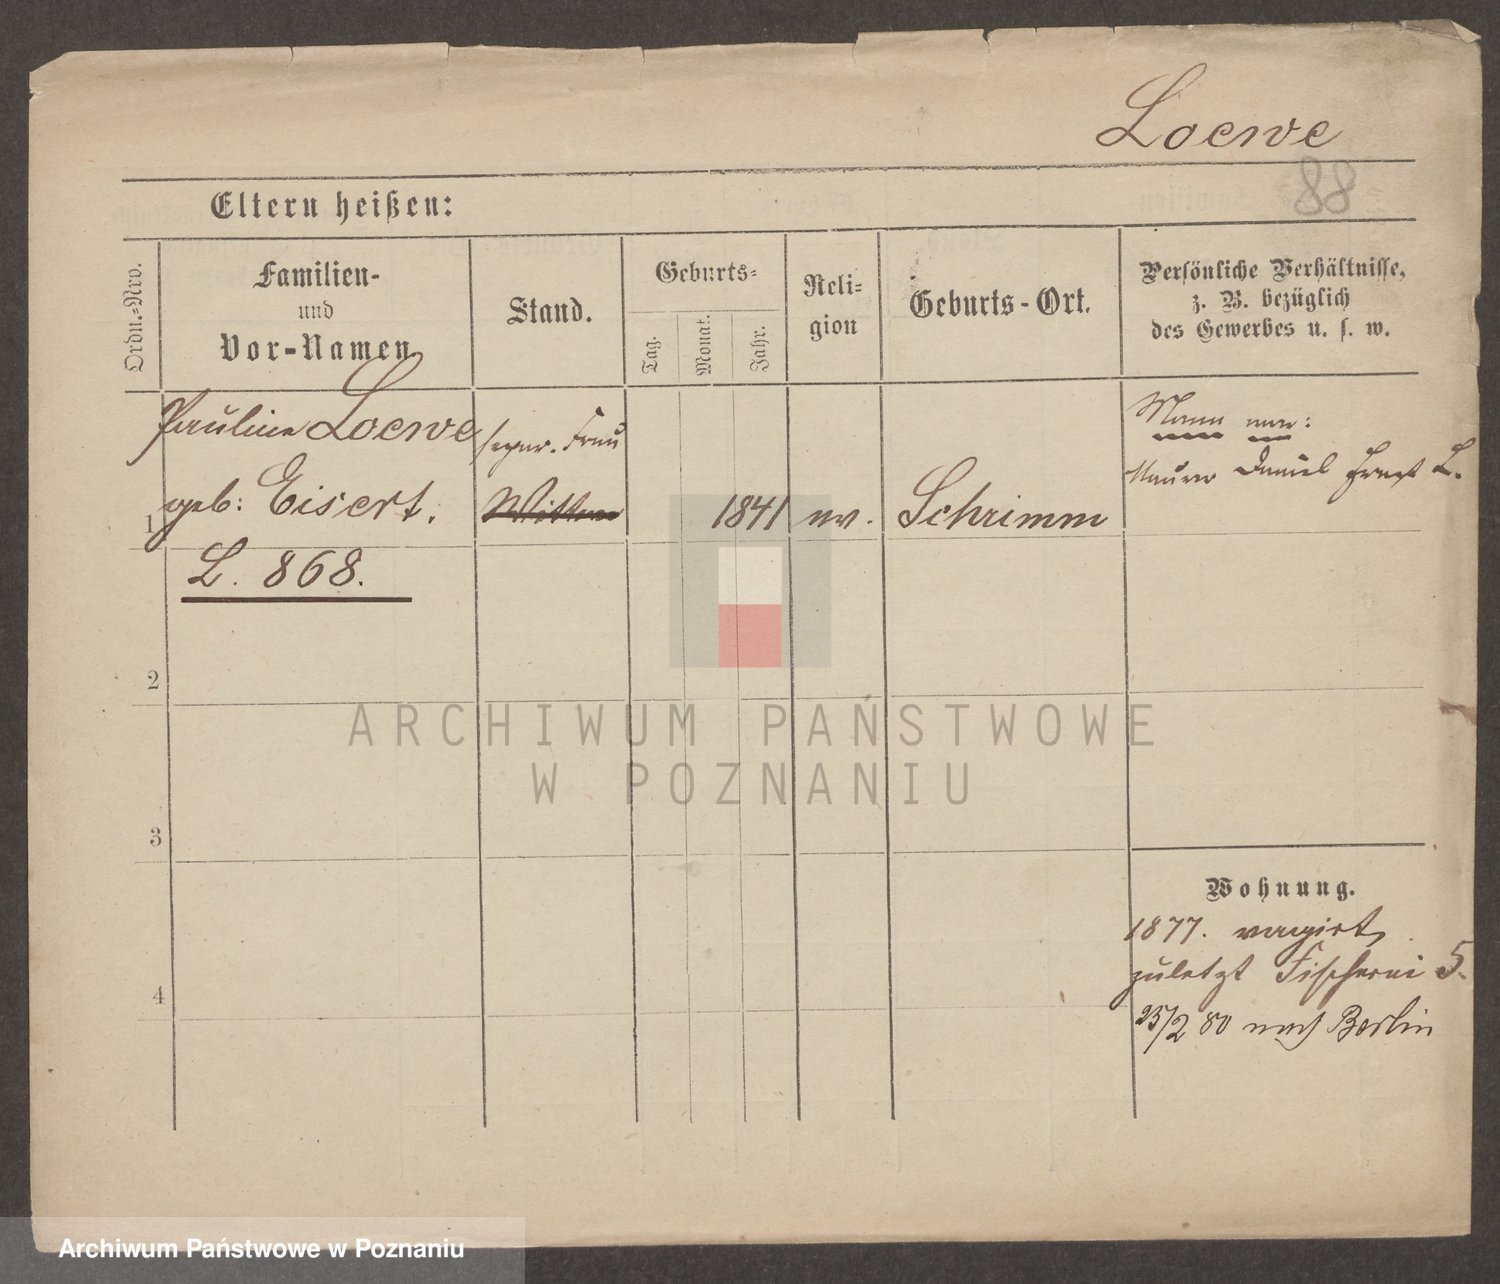 Loewe
88
Eltern heißen:
Ordn.-Nro.
Familien-
und
Vor-Namen
Stand.
Geburts-
Tag.
Monat.
Jahr.
Reli-
gion
Geburts-Ort.
Persönliche Verhältnisse,
z. B. bezüglich
des Gewerbes u. s. w.
1
Pauline Loewe
geb: Eisert.
L. 868.
separ. Frau
Wittwe
1841
ev.
Schrimm
Mann war:
Maurer Daniel Ernst L.
2
3
4
Wohnung.
1877. vagirt,
zuletzt Fischerei 5.
25/2 80 nach Berlin
ARCHIWUM PAŃSTWOWE
W POZNANIU
Archiwum Państwowe w Poznaniu